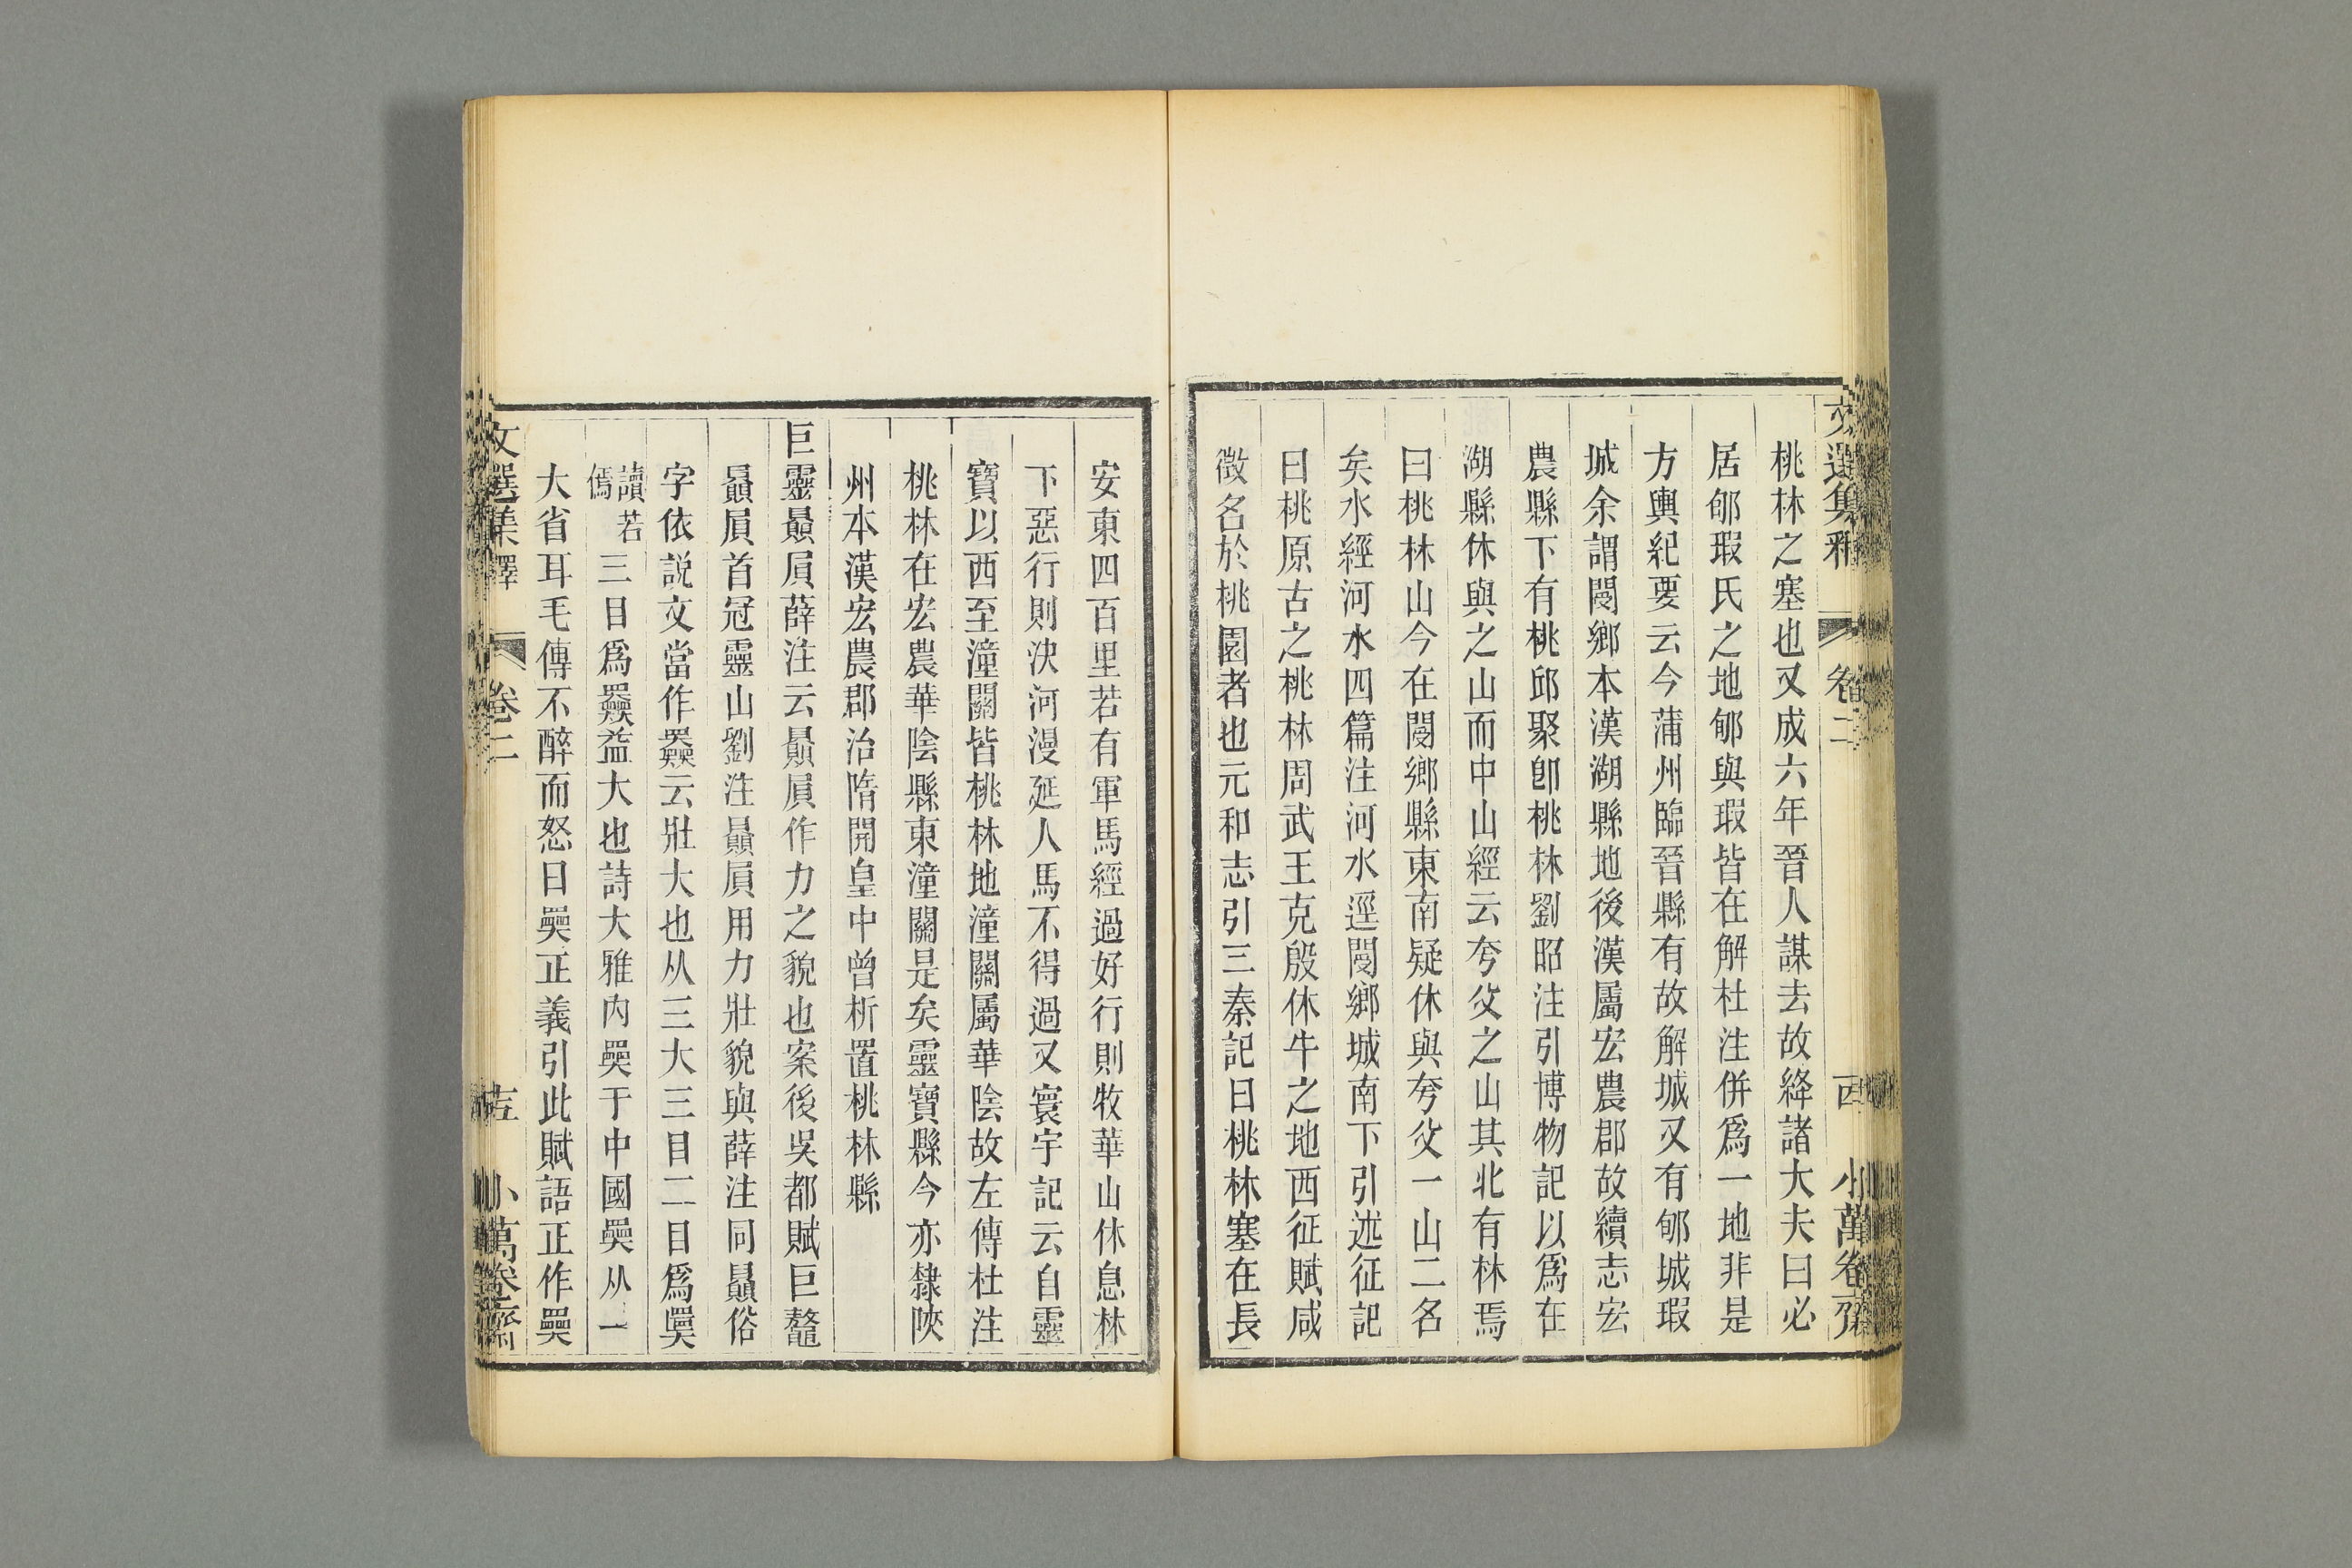 文選集釋 卷二 小萬卷齋
桃林之塞也又成六年晉人謀去故絳諸大夫曰必
居郇瑕氏之地郇與瑕皆在解杜注併爲一地非是
方輿紀要云今蒲州臨晉縣有故解城又有郇城瑕
城余謂閿鄉本漢湖縣地後漢屬宏農郡故續志宏
農縣下有桃邱聚卽桃林劉昭注引博物記以爲在
湖縣休與之山而中山經云夸父之山其北有林焉
曰桃林山今在閿鄉縣東南疑休與夸父一山二名
矣水經河水四篇注河水逕閿鄉城南下引述征記
曰桃原古之桃林周武王克殷休牛之地西征賦咸
徵名於桃園者也元和志引三秦記曰桃林塞在長
安東四百里若有軍馬經過好行則牧華山休息林
下惡行則決河漫延人馬不得過又寰宇記云自靈
寶以西至潼關皆桃林地潼關屬華陰故左傳杜注
桃林在宏農華陰縣東潼關是矣靈寶縣今亦隸陝
州本漢宏農郡治隋開皇中曾析置桃林縣
巨靈贔屓薛注云贔屓作力之貌也案後吳都賦巨鼇
贔屓首冠靈山劉注贔屓用力壯貌與薛注同贔俗
字依說文當作𡚤云壯大也从三大三目二目爲㒼
讀若
傿
三目爲𡚤益大也詩大雅內奰于中國奰从一
大省耳毛傳不醉而怒曰奰正義引此賦語正作奰
文選集釋 卷二 十五 小萬卷齋